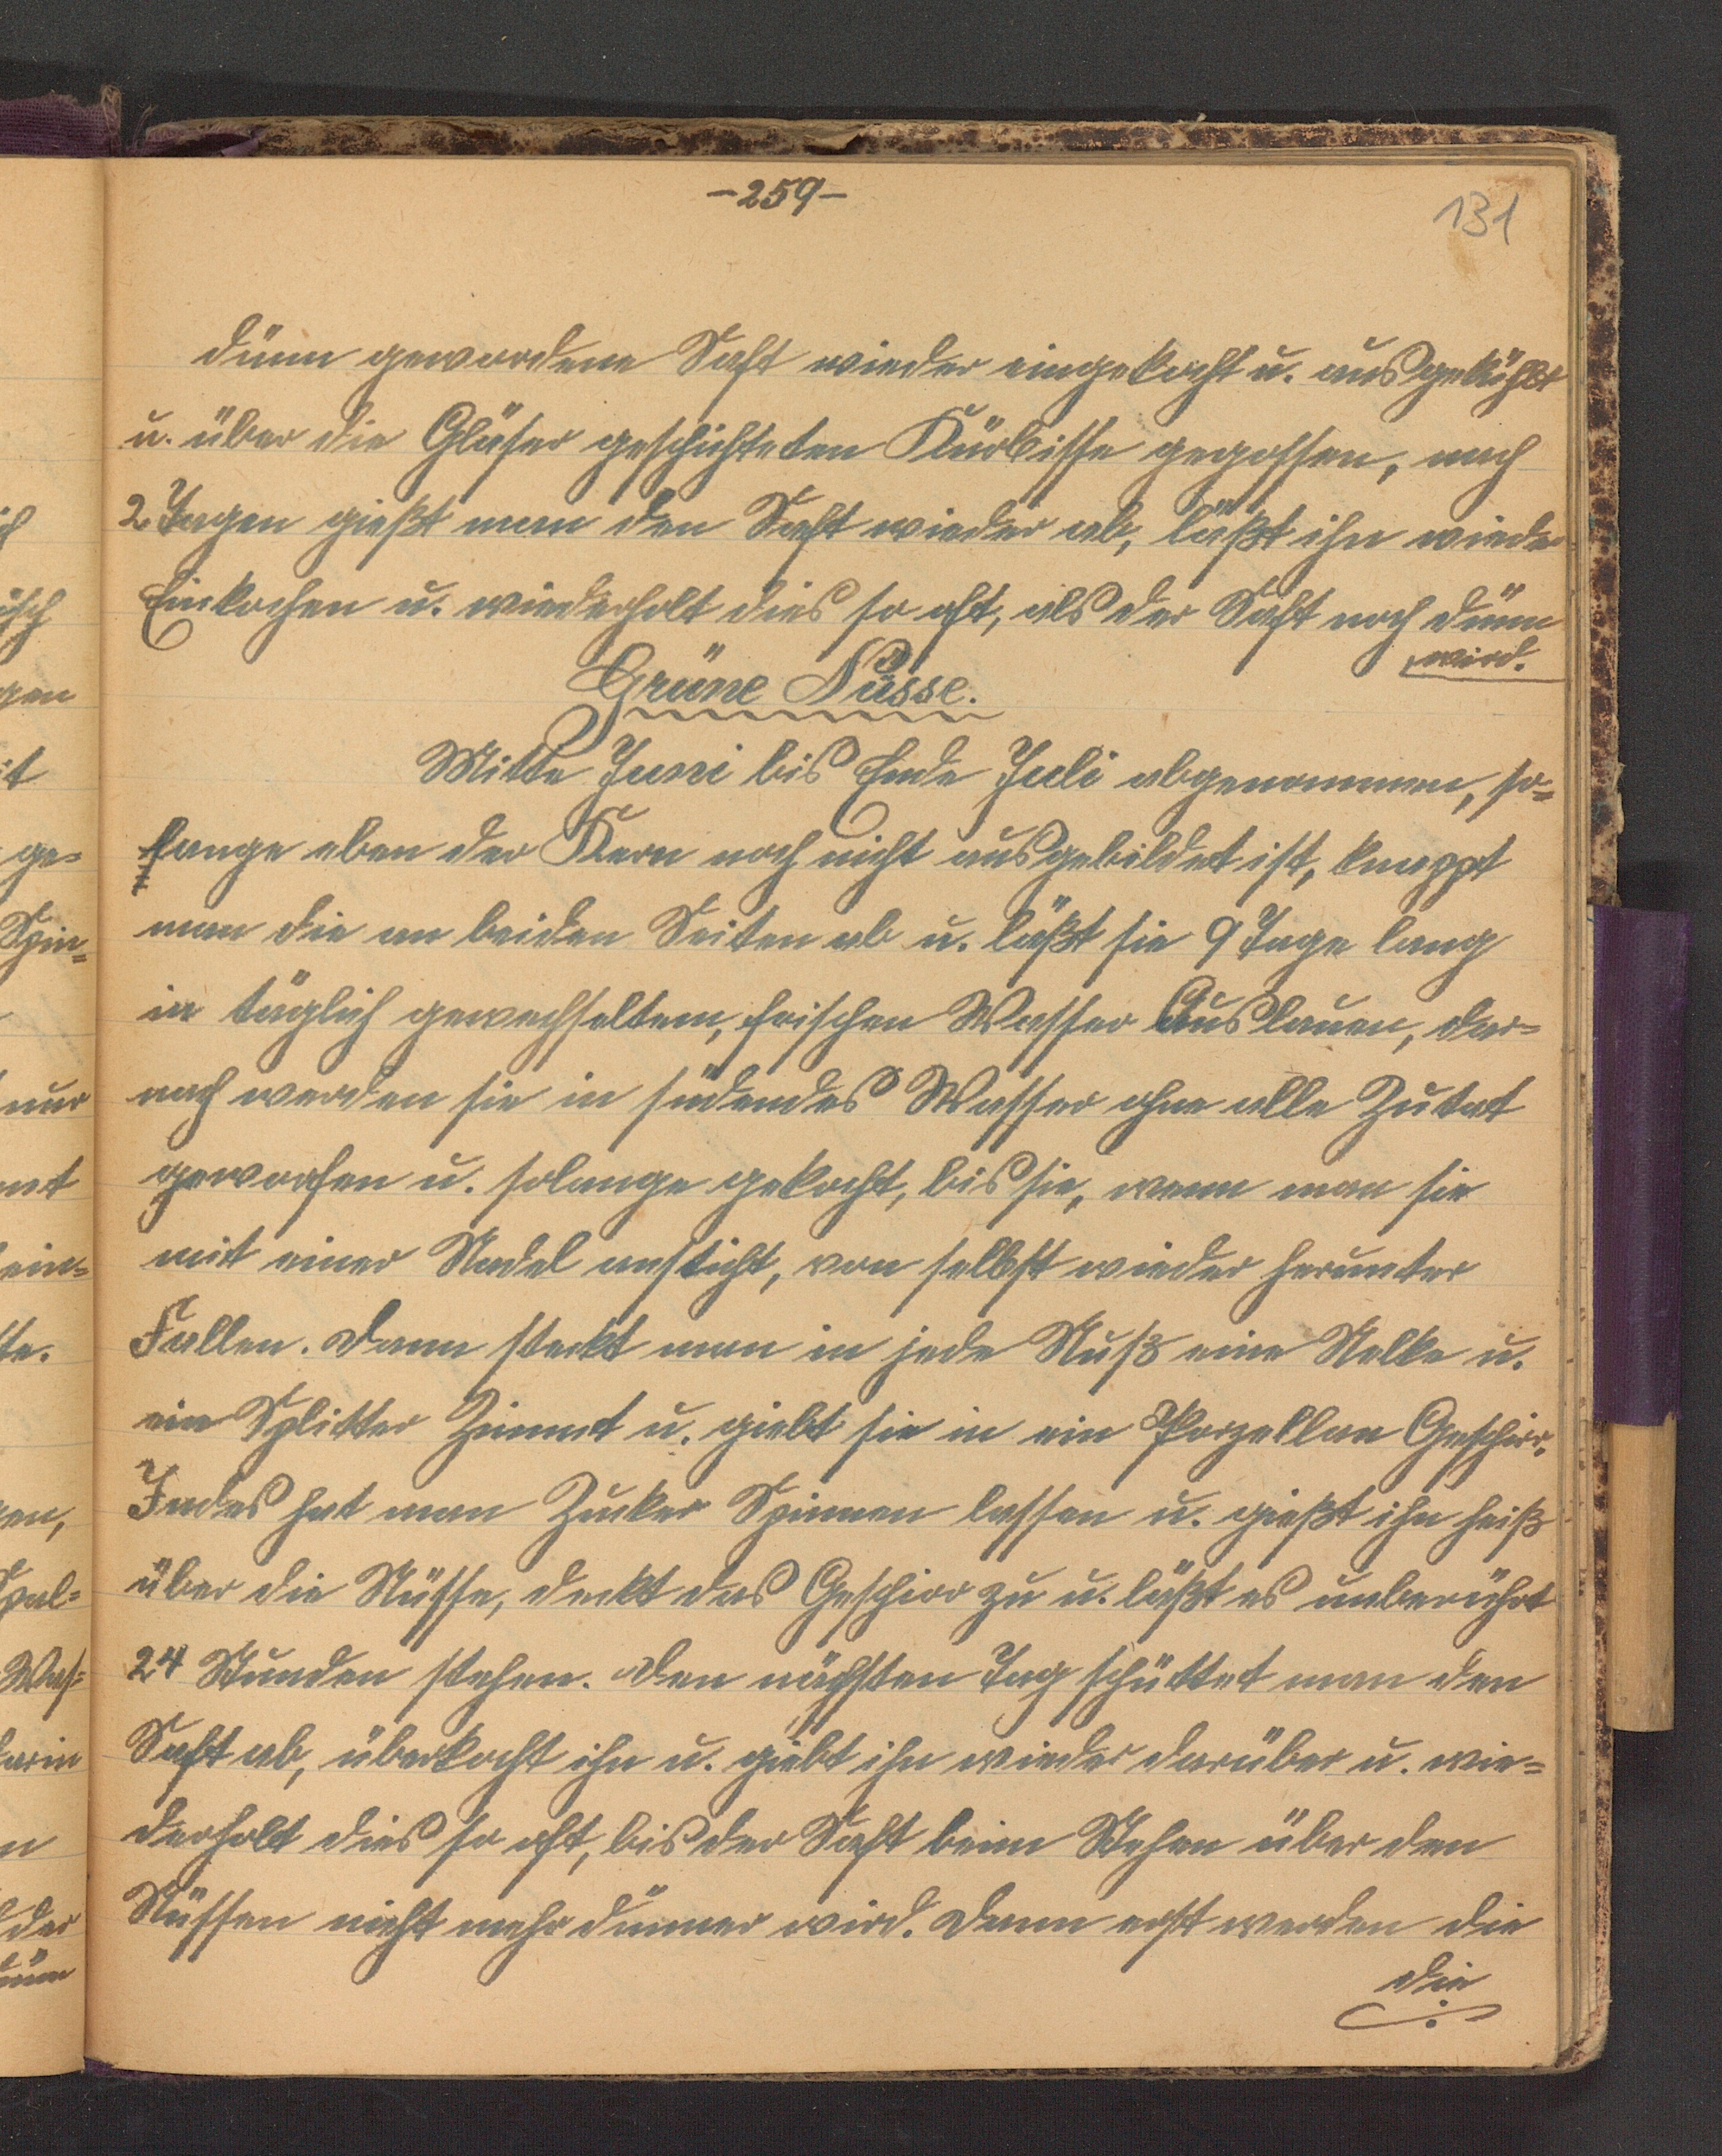 -259-
131
dünn gewordene Saft wieder eingekocht u. ausgekühlt
u. über die Gläser geschichteten Kürbisse gegossen, nach
2 Tagen gießt man den Saft wieder ab, läßt ihn wieder
Einkochen u. wiederholt dies so oft, als der Saft noch dünn
wird.
Grüne Nüsse.
Mitte Juni bis Ende Juli abgenommen, so=
lange eben der Kern noch nicht ausgebildet ist, knappt
man die an beiden Seiten ab u. läßt sie 9 Tage lang
in täglich gewechseltem, frischen Wasser Auslauen, dar=
nach werden sie in südendes Wasser ohne alle Zutat
geworfen u. solange gekocht, bis sie, wenn man sie
mit einer Nadel ansticht, von selbst wieder herunter
Fallen. Dann steckt man in jede Nuß eine Nelke u.
ein Splitter Zimmt u. giebt sie in ein Porzellan Geschirr.
Indes hat man Zucker Spinnen lassen u. gießt ihn heiß
über die Nüsse, deckt das Geschirr zu u. läßt es unberührt
24 Stunden stehen. Den nächsten Tag schüttet man den
Saft ab, überkocht ihn u. giebt ihn wieder darüber u. wie=
derholt dies so oft, bis der Saft beim Stehen über den
Nüssen nicht mehr dünner wird. Dann erst werden die
die